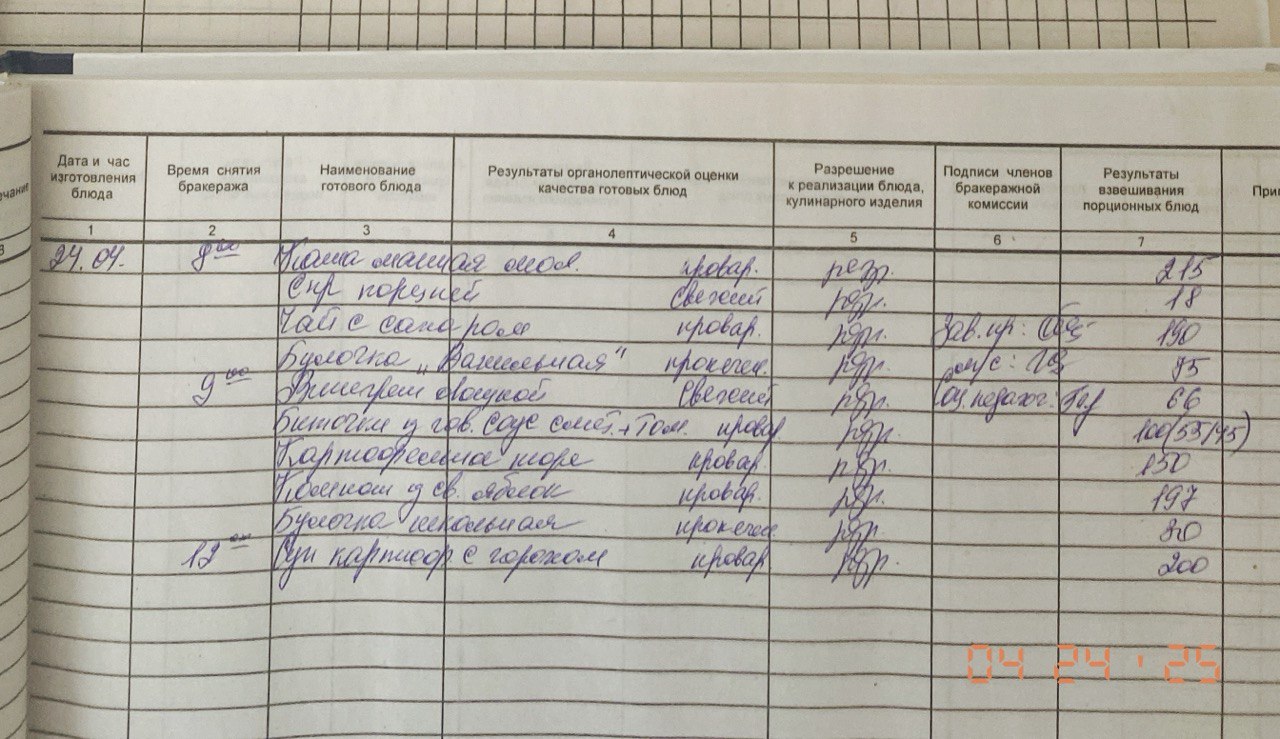 Дата и час изготовления блюда
Время снятия бракеража
Наименование готового блюда
Результаты органолептической оценки качества готовых блюд
Разрешение к реализации блюда, кулинарного изделия
Подписи членов бракеражной комиссии
Результаты взвешивания порционных блюд
1 2 3 4 5 6 7
24.04. 8 00 Каша манная мол. провар. разр. 215
Сыр порцией свежий разр. 18
Чай с сахаром провар. разр. Зав. пр: 190
Булочка „Ванильная“ пропечен. разр. 75
9 00 Винегрет овощной свежий разр. Отв. педагог: 66
Биточки из гов. соус смет.+том. провар разр. 100(55/45)
Картофельное пюре провар разр. 150
Компот из св. яблок провар. разр. 197
Булочка школьная пропечен разр. 80
12 00 Суп картоф с горохом провар разр. 200
04 24 ' 25